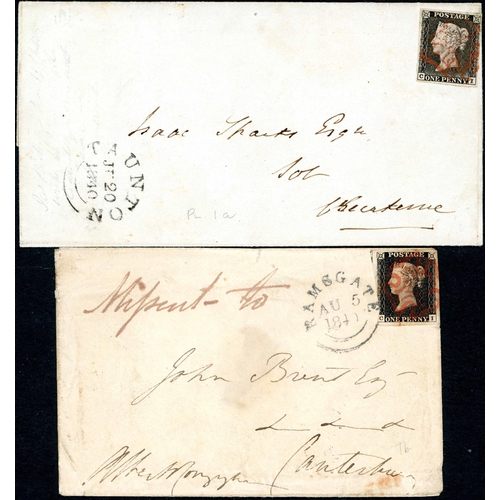 POSTAGE
C ONE PENNY F
Isaac Sparks Esqr
Sol
Crewkerne
UNTON
JY 20
1840
Pl. 1a
POSTAGE
C ONE PENNY I
Missent to
RAMSGATE
AU 5
1840
John Brent Esq
Canterbury